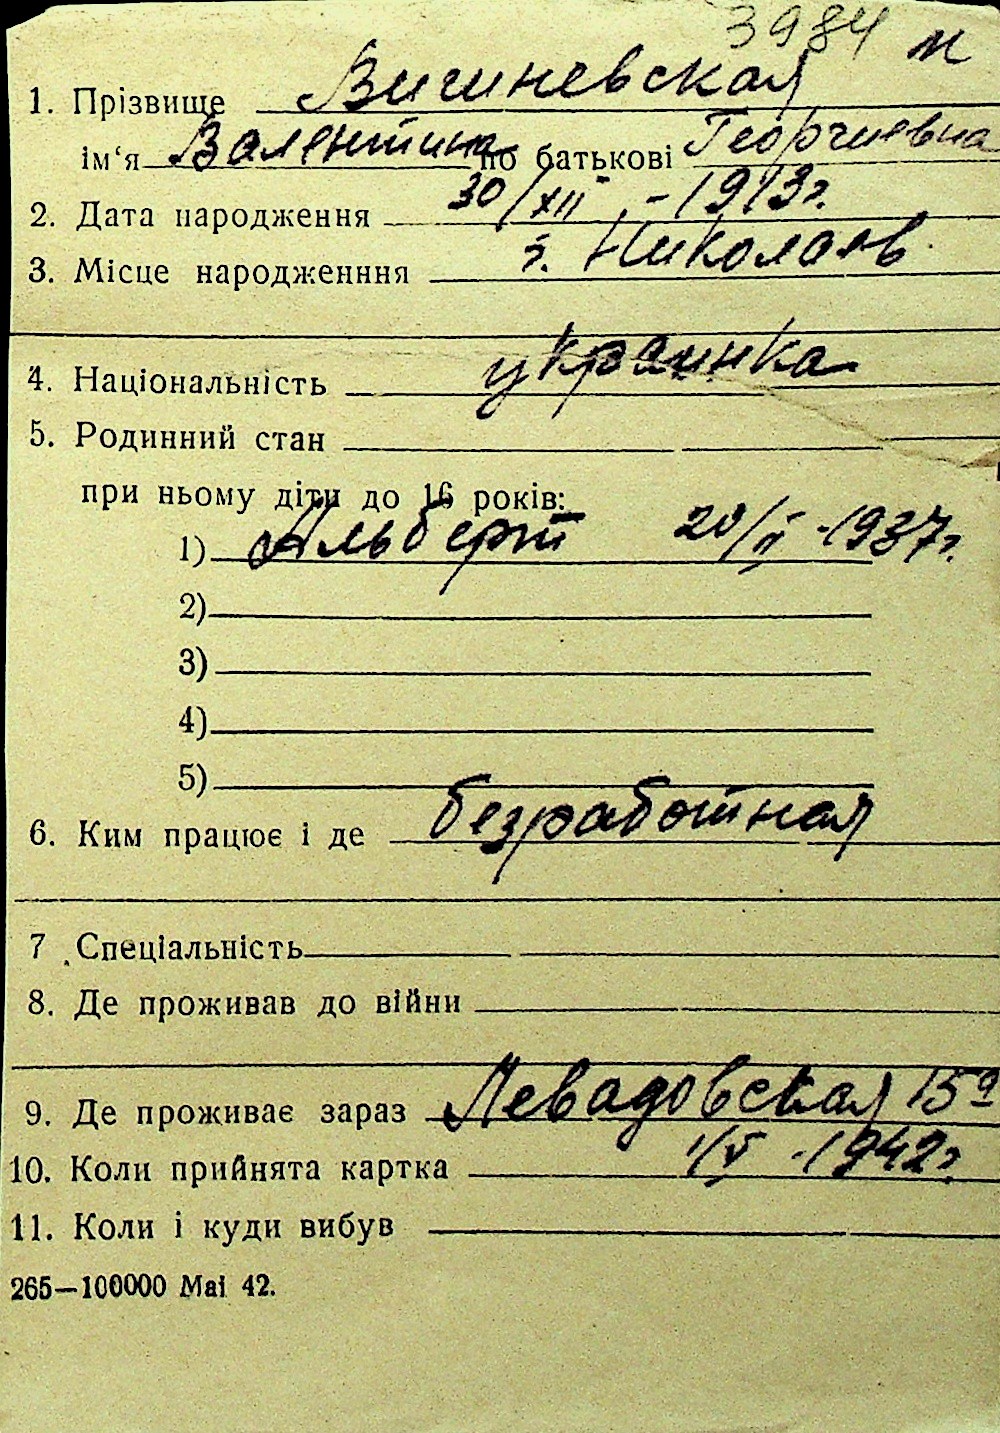 3984 м
1. Прізвище Вишневская
ім‘я Валентина по батькові Георгиевна
2. Дата народження 30/XII - 1913г.
3. Місце народженння г. Николаев.
4. Національність украинка
5. Родинний стан
при ньому діти до 16 років:
1) Альберт 20/II - 1937г.
2)
3)
4)
5)
6. Ким працює і де безработная
7. Спеціальність
8. Де проживав до війни
9. Де проживає зараз Левадовская 15а
10. Коли прийнята картка 1/V - 1942г.
11. Коли і куди вибув
265—100000 Mai 42.